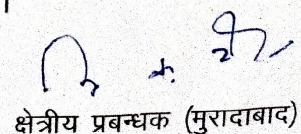 क्षेत्रीय प्रबन्धक (मुरादाबाद)